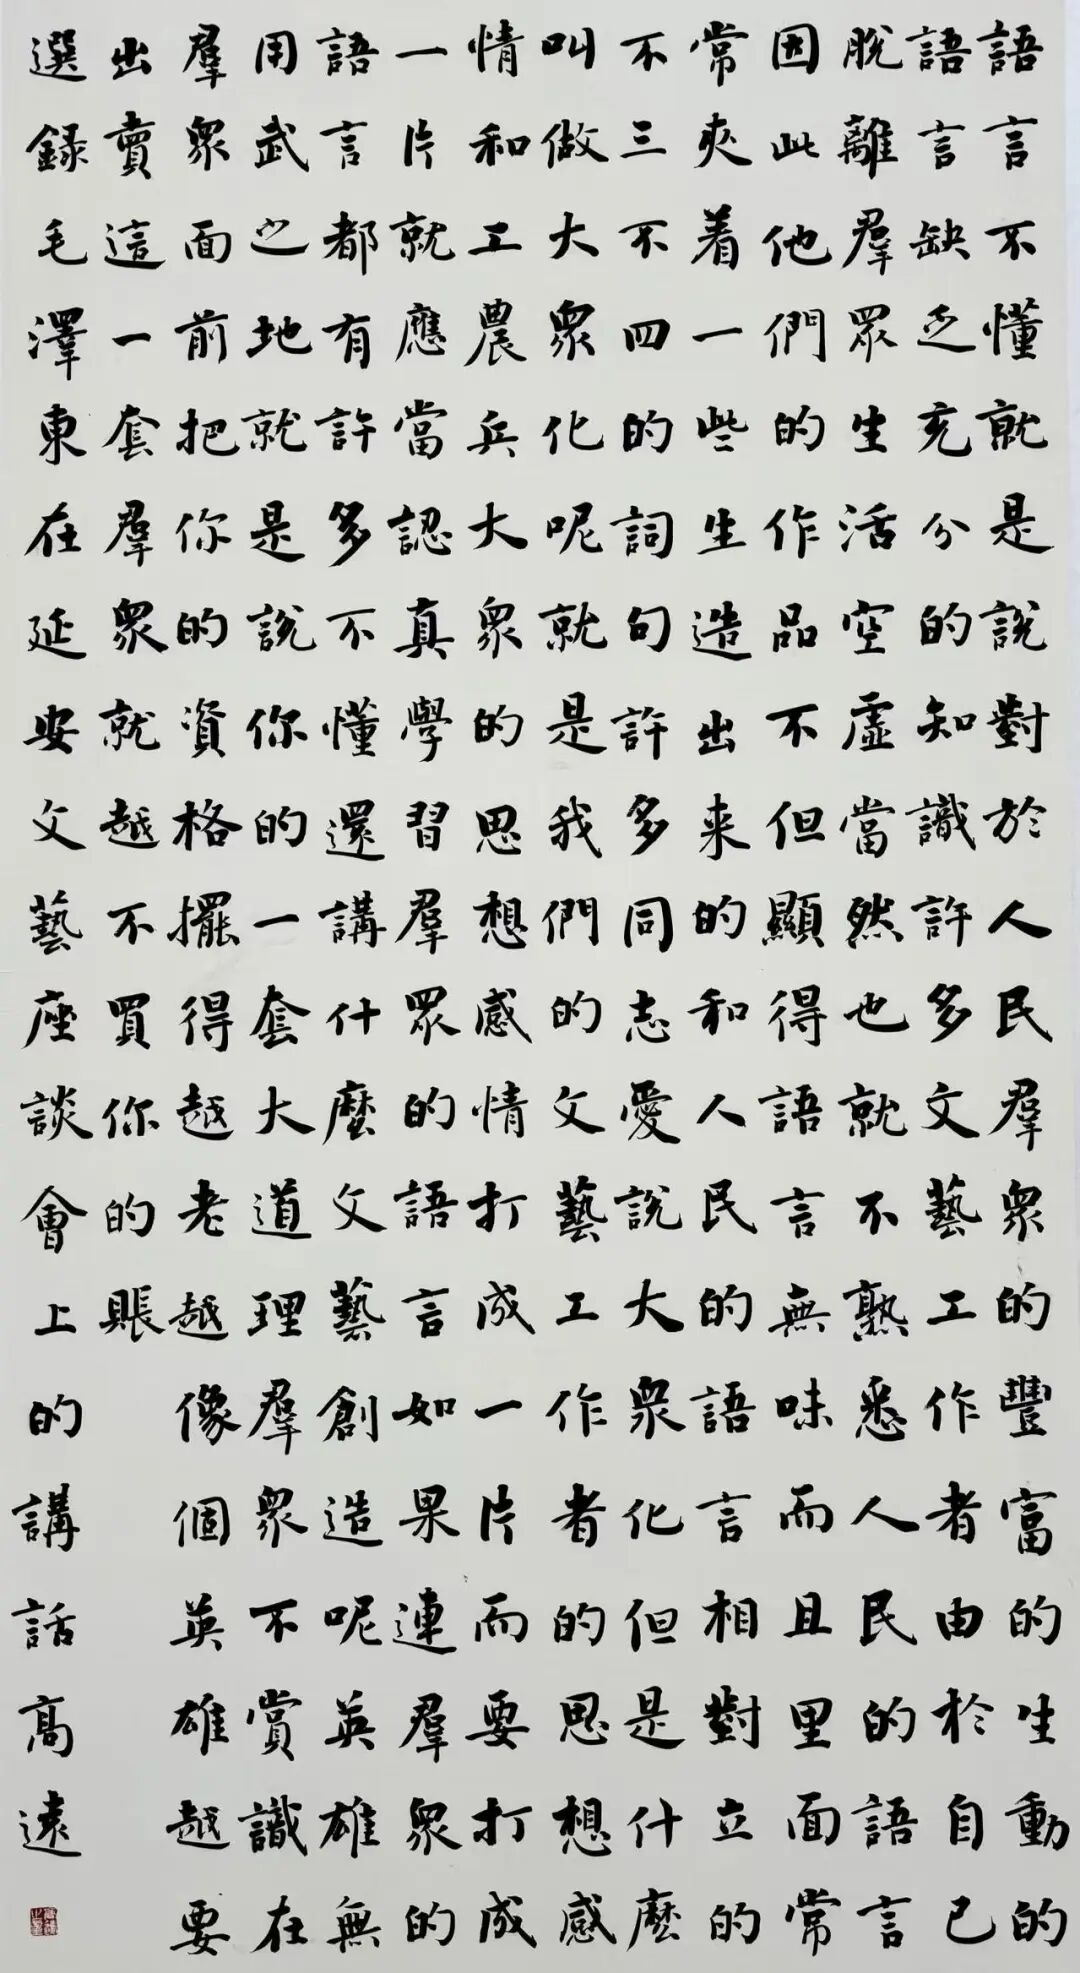 語言不懂就是說對於人民群衆的豐富的生動的
語言缺乏充分的知識許多文藝工作者由於自己
脫離群眾生活空虛當然也就不熟悉人民的語言
因此他們的作品不但顯得語言無味而且里面常
常夾着一些生造出来的和人民的語言相對立的
不三不四的詞句許多同志愛說大衆化但是什麼
叫做大衆化呢就是我們的文藝工作者的思想感
情和工農兵大衆的思想感情打成一片而要打成
一片就應當認真學習群眾的語言如果連群衆的
語言都有許多不懂還講什麼文藝創造呢英雄無
用武之地就是說你的一套大道理群衆不賞識在
群衆面前把你的資格擺得越老越像個英雄越要
出賣這一套群衆就越不買你的賬
選錄毛澤東在延安文藝座談會上的講話高遠